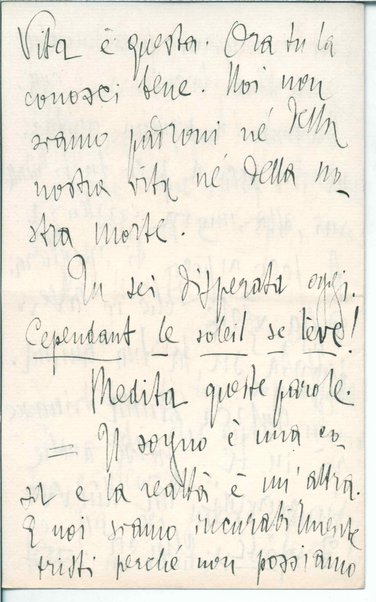 Vita è questa. Ora tu la
conosci bene. Noi non
siamo padroni né della
nostra vita né della no-
stra morte.
Tu sei disperata oggi.
Cependant le soleil se lève!
Medita queste parole.
= Il sogno è una co-
sa e la realtà è un'altra.
E noi siamo incurabilmente
tristi perché non possiamo